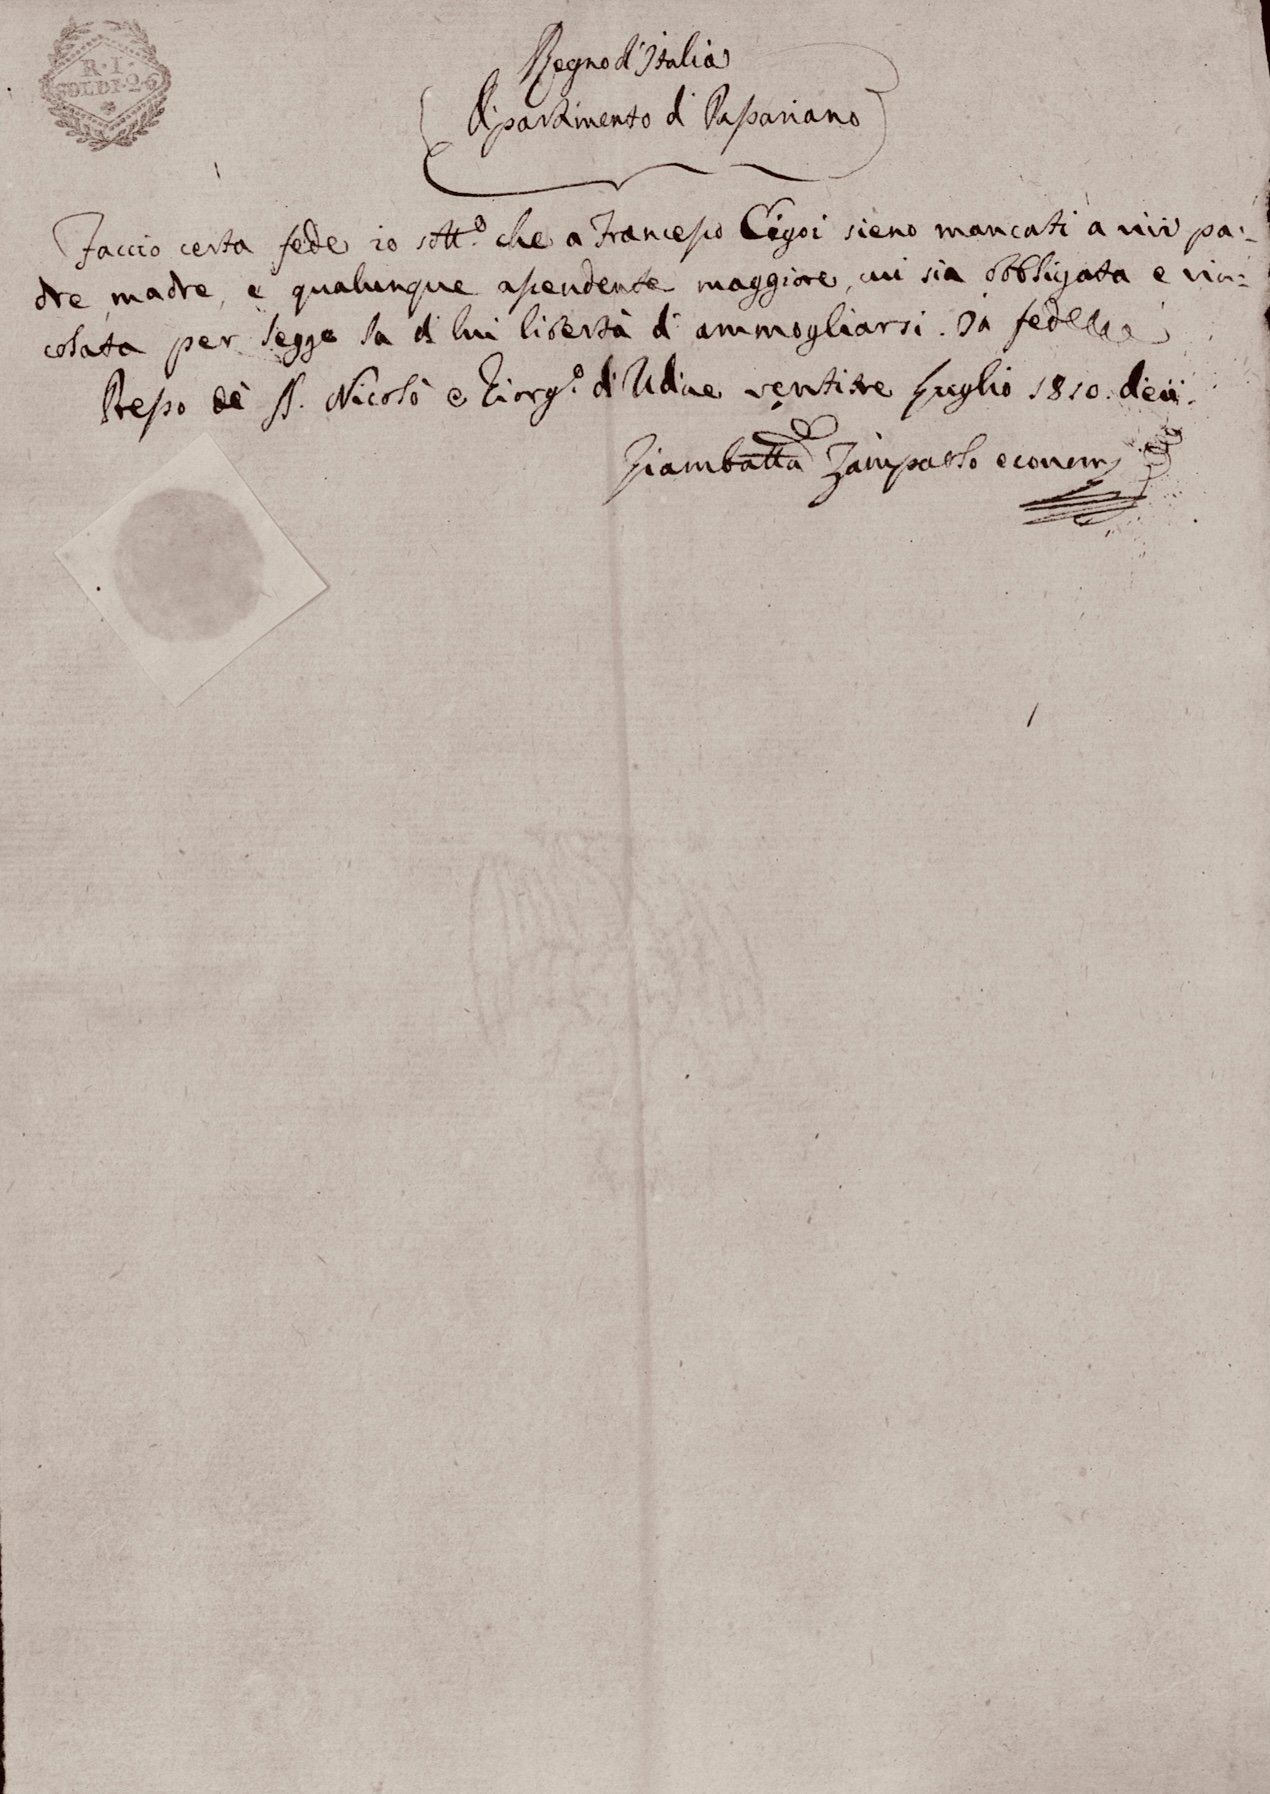 R. I.
SOLDI. 26
Regno d'Italia
Dipartimento di Passariano
Faccio certa fede io sott.o che a Francesco Cigoi sieno mancati a vivi pa:
dre madre, e qualunque ascendente maggiore, cui sia obbligata e vin:
colata per legge la di lui libertà di ammogliarsi. In fede
Presso dè SS. Nicolò e Giorg.o di Udine ventitre Luglio 1810. dieci.
Giambatta Zampallo econom